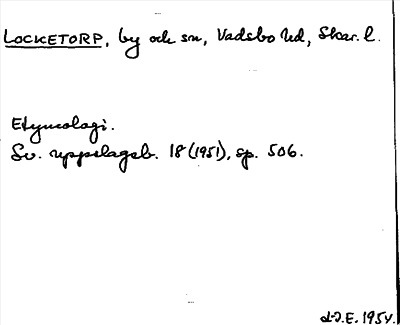 LOCKETORP, by och sn, Vadsbo hd, Skar. l.
Etymologi.
Sv. uppslagsb. 18 (1951), sp. 506.
1954.